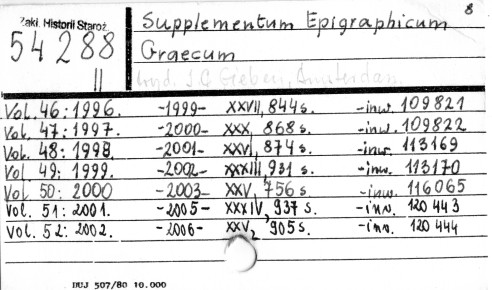 8
Zakł. Historii Staroż.
54288
II
Supplementum Epigraphicum
Graecum
wyd. J.C. Gieben, Amsterdam.
Vol. 46: 1996. -1999- XXVII, 844 s. -inw. 109821
Vol. 47: 1997. -2000- XXX, 868 s. -inw. 109822
Vol. 48: 1998. -2001- XXVI, 874 s. -inw. 113169
Vol. 49: 1999. -2002- XXXIII, 931 s. -inw. 113170
Vol 50: 2000 -2003- XXV, 756 s. -inw. 116065
Vol. 51: 2001. -2005- XXXIV, 937 s. -inv. 120 443
Vol. 52: 2002. -2006- XXV, 905 s. -inv. 120 444
DUJ 507/80 10.000